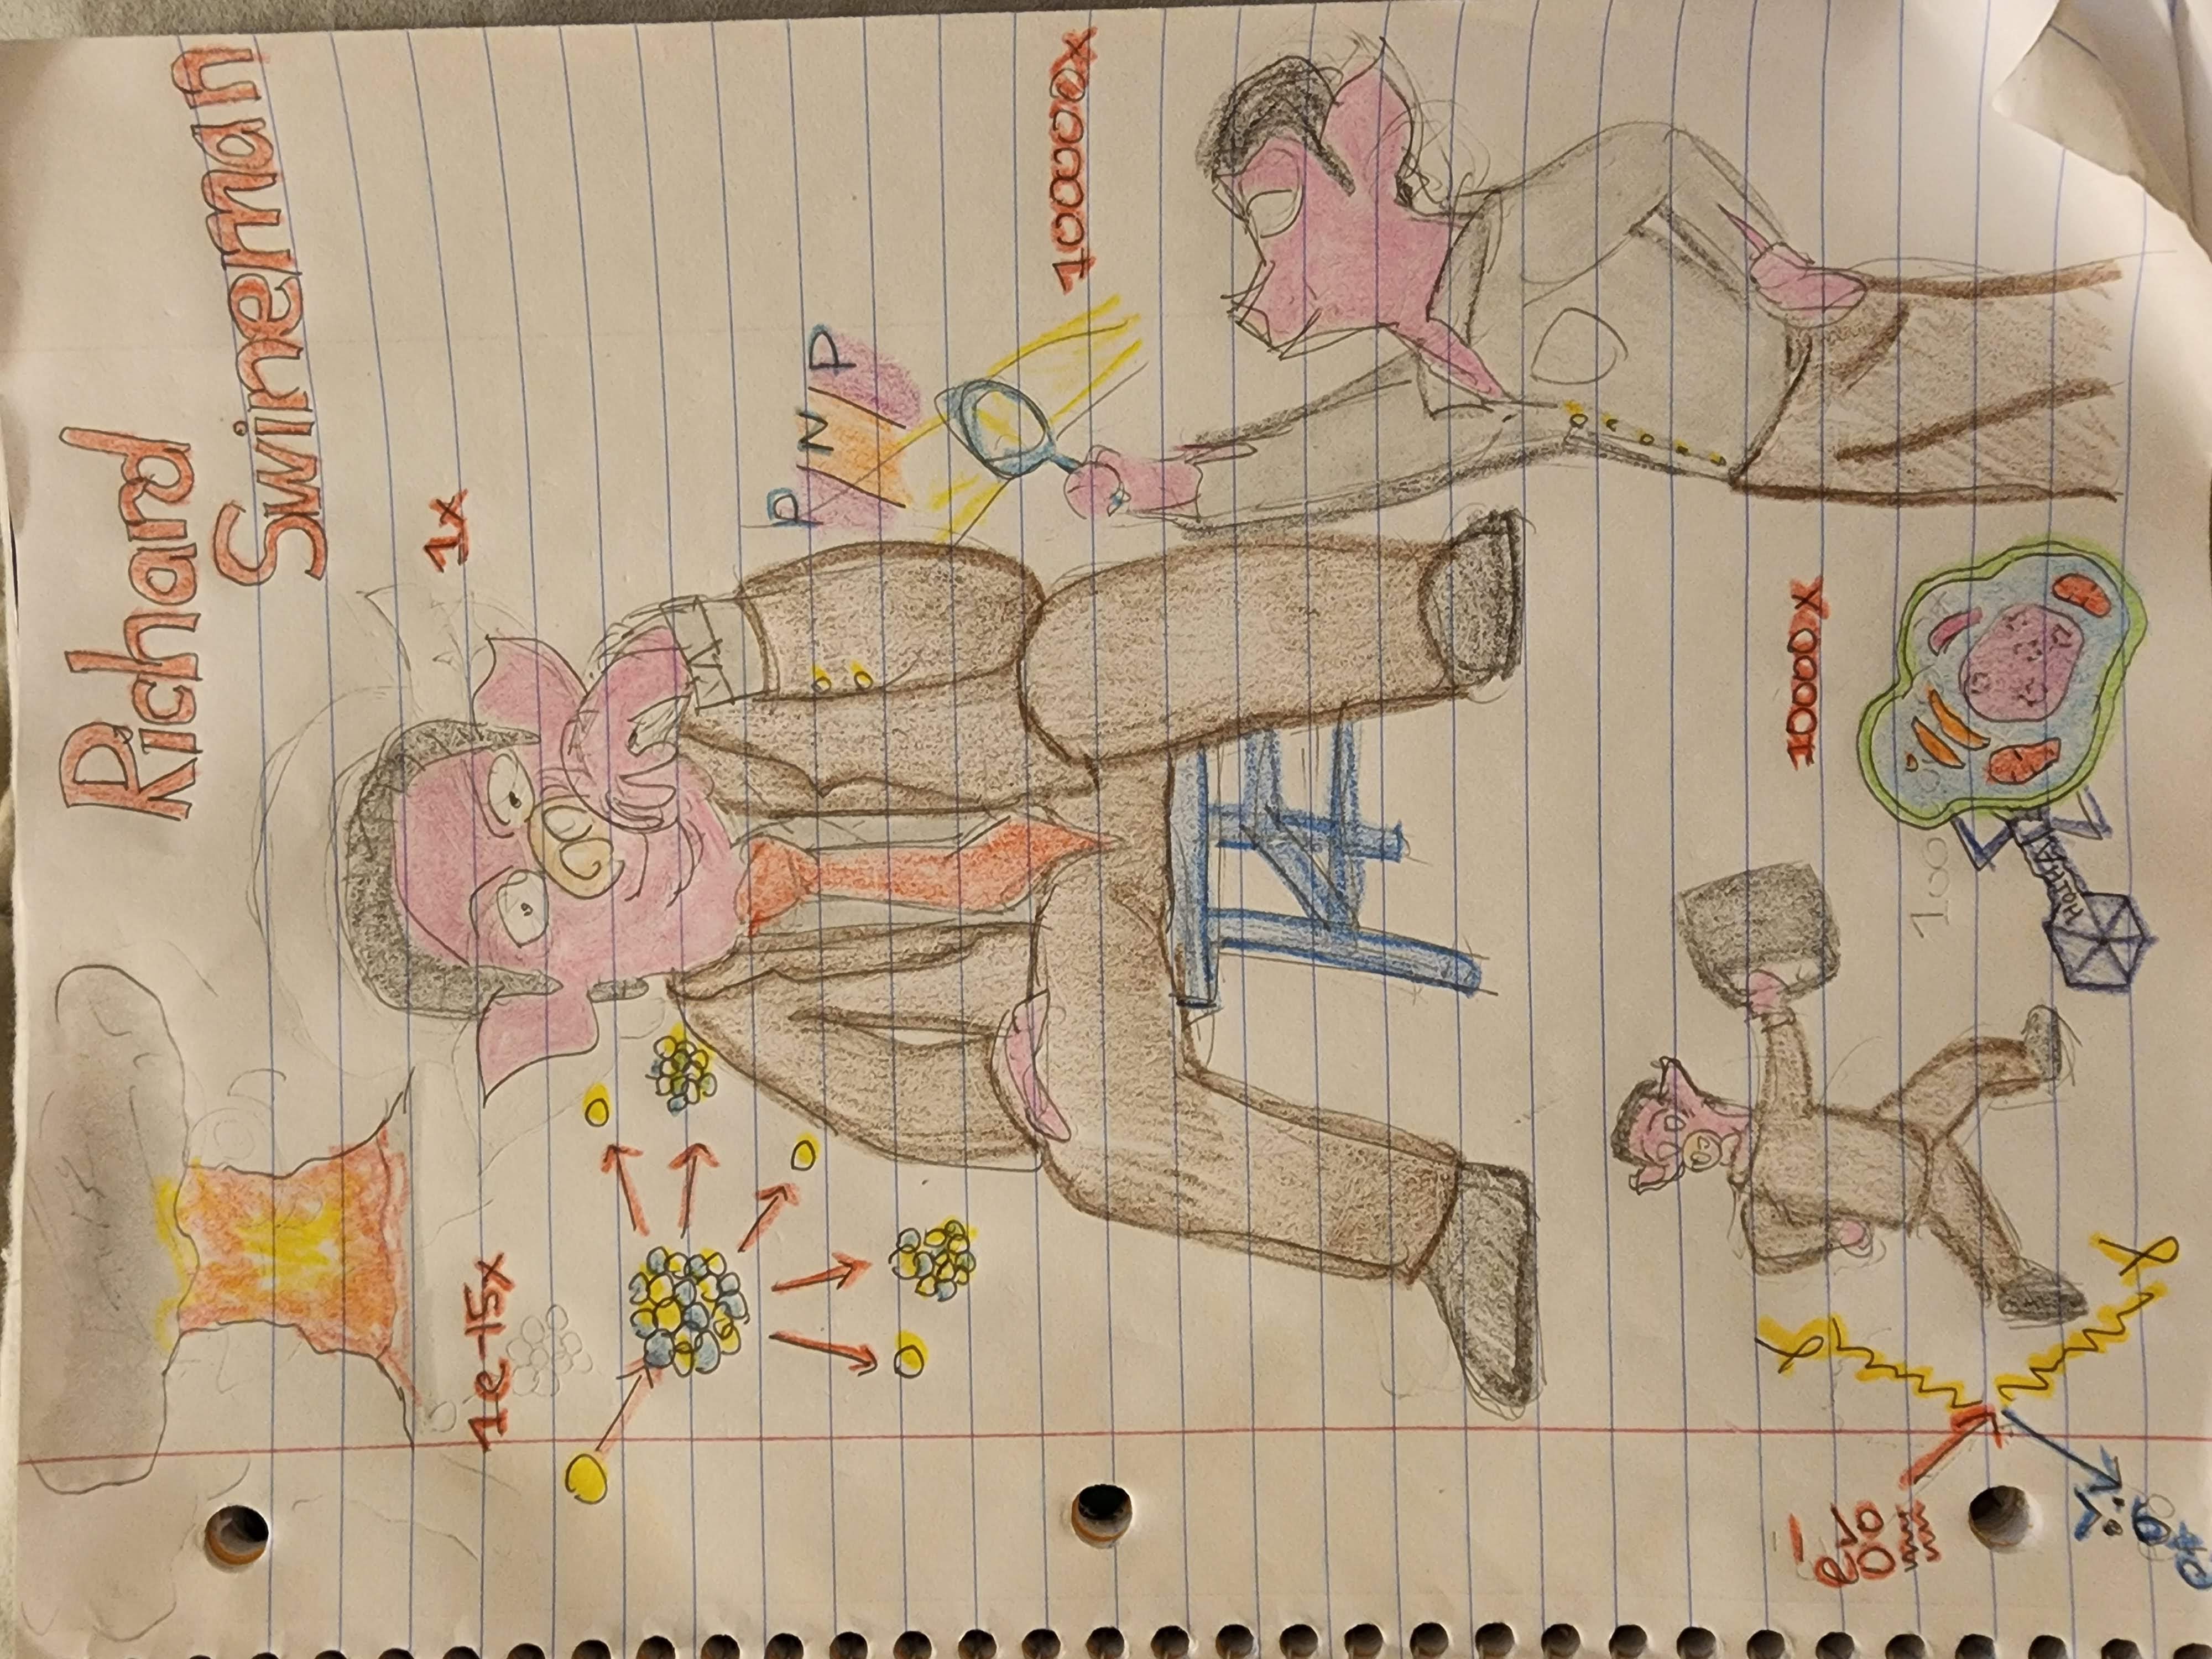 Richard
Swineman
1x
1e-15x
P N P
100000x
10000x
e-
γ
γ
e+